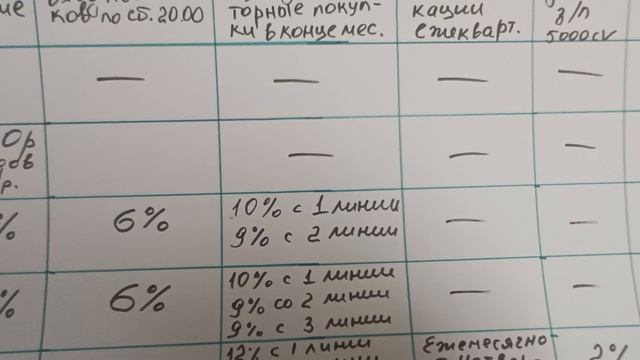 ие
ков по сб. 20.00
торные покуп-
ки в конце мес.
кации
ежекварт.
з/п
5000 cv
—
—
—
—
ор
р.
—
—
—
%
6%
10% с 1 линии
9% с 2 линии
—
—
%
6%
10% с 1 линии
9% со 2 линии
9% с 3 линии
—
—
12% с 1 линии
Ежемесячно
2%